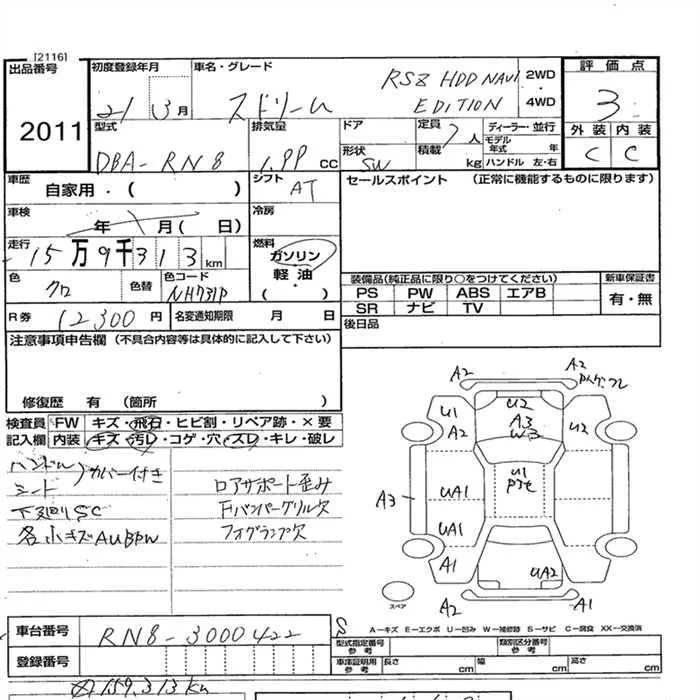 [2116]
出品番号
2011
初度登録年月
21 3月
車名・グレード
ストリーム
RSZ HDD NAVI
EDITION
2WD
・
4WD
評価点
3
外装 内装
C C
型式
DBA-RN8
排気量
1.99 CC
ドア
形状
SW
定員 7人
積載 kg
ディーラー・並行
モデル年式 年
ハンドル 左・右
車歴
自家用・( )
シフト
AT
セールスポイント (正常に機能するものに限ります)
車検
年 月( 日)
冷房
走行
15万9千313km
燃料
ガソリン
・
軽油
・
( )
色
クロ
色替
色コード
NH731P
装備品(純正品に限り○をつけてください)
PS PW ABS エアB
SR ナビ TV
新車保証書
有・無
R券 12300円
名変通知期限 月 日
後日品
注意事項申告欄 (不具合内容等は具体的に記入して下さい)
修復歴 有 (箇所 )
検査員 FW キズ・飛石・ヒビ割・リペア跡・×要
記入欄 内装 キズ・汚レ・コゲ・穴・スレ・キレ・破レ
ハンドル
シート
カバー付き
下廻りSC
各小キズAUBPW
ロアサポート歪み
Fバンパーグリル欠
フォグランプ欠
A2
A2
U1
A2
U2
A3
W3
U2
A3
UA1
U1
UA1
A1
UA2
A2
A1
スペア
A－キズ E－エクボ U－凹み W－補修跡 S－サビ C－腐食 XX－交換済
車台番号
RN8-3000422
S
登録番号
型式指定番号
参考
類別区分番号
参考
車庫証明用
参考
長さ cm
幅 cm
高さ cm
159,313km